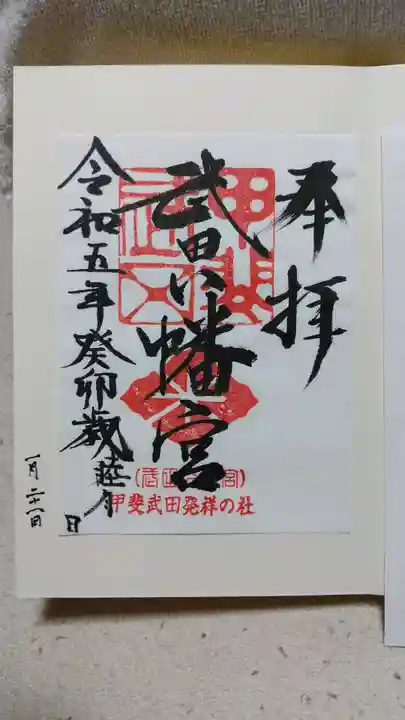 奉拝
武田八幡宮
甲斐武田発祥の社
令和五年癸卯歳睦月
日
一月二十一日